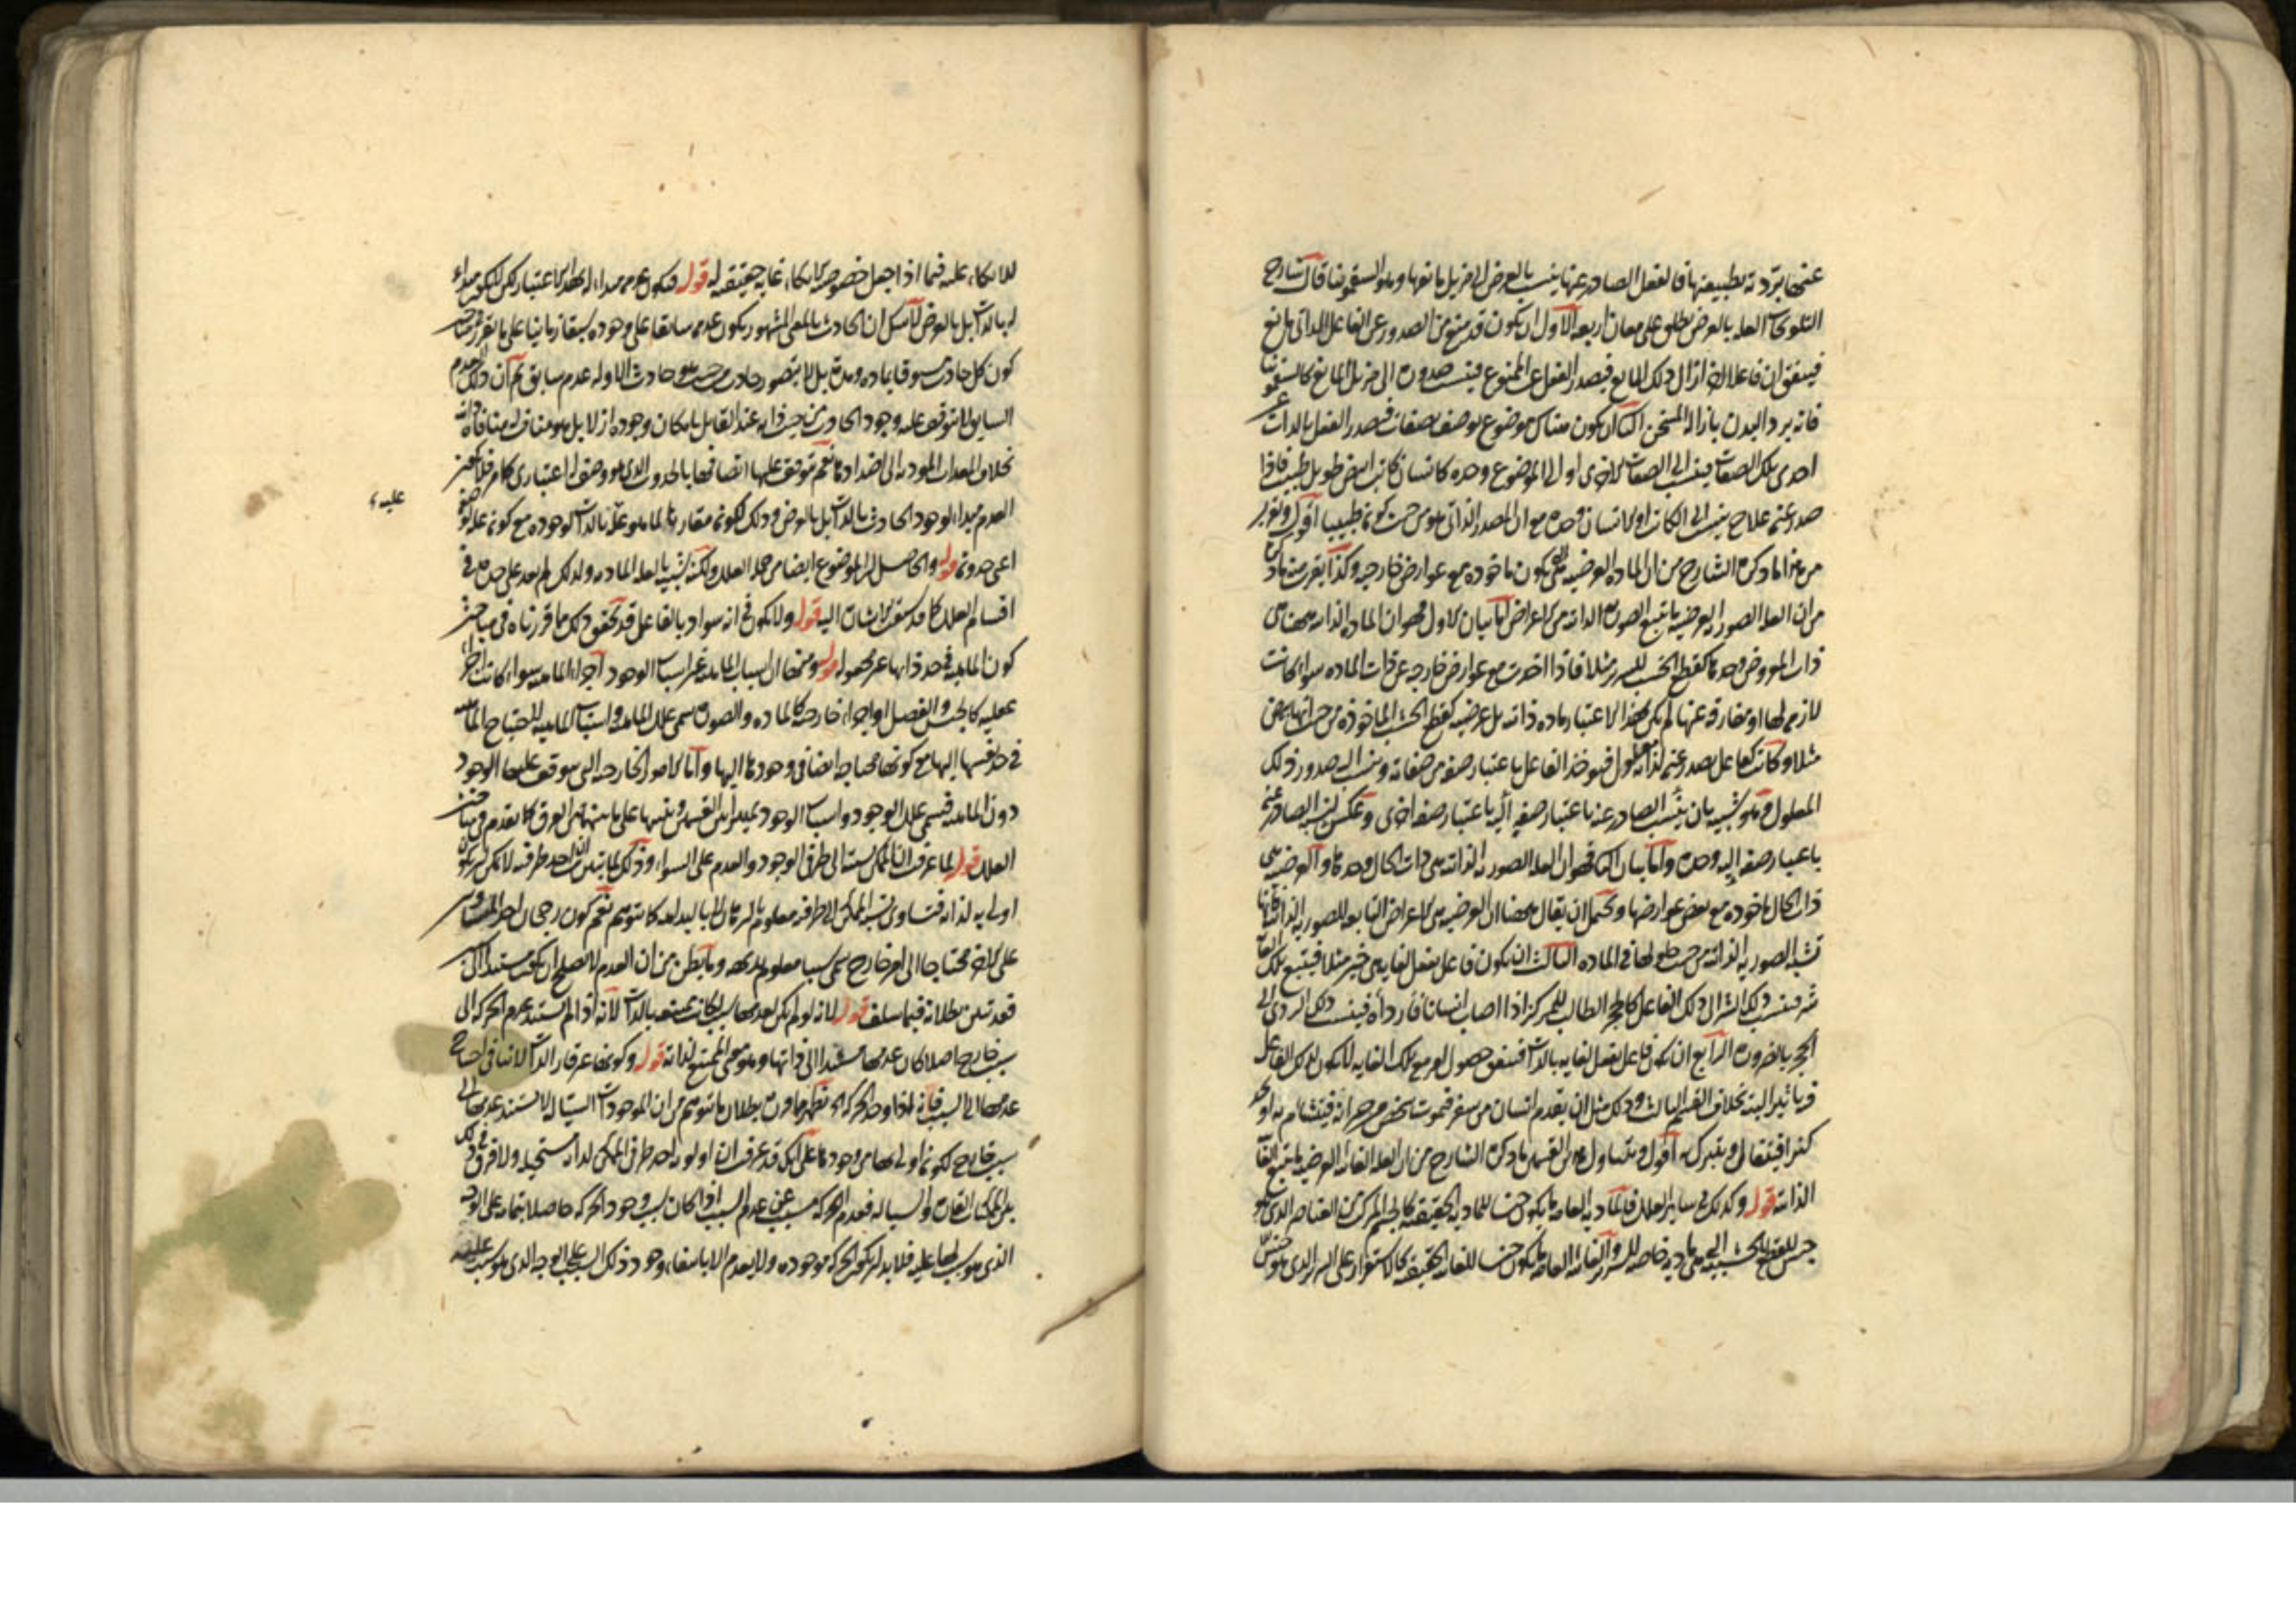 عنها برّدته بطبيعتها فالفعل الصادر عنها ينسب بالعرض الى مزيل مانعها وهو السقمونيا قال شارح
التلويحات العلة بالعرض يطلق على معان اربعة الاول ان يكون قد منع من الصدور عن الفاعل الذاتى مانع
فيتفق ان فاعلا اخر ازال ذلك المانع فيصدر الفعل عن الممنوع فينسب صدوره الى مزيل المانع كالسقمونيا
فانه يبرد البدن بازالة المسخن الثانى ان يكون هناك موضوع يوصف بصفات فيصدر الفعل بالذات عن
احدى تلك الصفات فينسب الى الصفات الاخرى او الى الموضوع وحده كانسان كاتب ابيض طويل طبيب فاذا
صدر عنه علاج ينسب الى الكاتب او الانسان وحده مع ان المصدر الذاتى هو من حيث كونه طبيبا اقول
من هذا ما ذكره الشارح من ان المادة العرضية هى ان يكون ماخوذه مع عوارض خارجة وكذا يقرب منه ما ذكره
من ان العلة الصورية العرضية ما يتبع الصورة الذاتية من الاعراض اما بيان الاول فهو ان المادة الذاتية ههنا هى
ذات المعروض وحدها كقطع الخشب للسرير مثلا فاذا اخذت مع عوارض خارجة عن ذات المادة سواء كانت
لازمة لها او مفارقة عنها لم يكن بهذا الاعتبار مادة ذاتية بل عرضية كقطع الخشب الماخوذة من حيث انها بيض
مثلا وكانت كفاعل يصدر عنه لذاته معلول فيوخذ الفاعل باعتبار صفة من صفاته وينسب اليه صدور ذلك
المعلول وهو شبيه بان ينسب الصادر عنه باعتبار صفة اليه باعتبار صفة اخرى وعكس لنسبة الصادر عنه
باعتبار صفة اليه وحده واما بيان الثانى فهو ان العلة الصورية الذاتية هى ذات الحال وحدها والعرضية هى
ذات الحال ماخوذه مع بعض عوارضها ويحتمل ان يقال ههنا ان العرضية هى الاعراض التابعة للصورية الذاتية فانها
تشبه الصورية الذاتية من حيث حلولها فى المادة الثالث ان يكون فاعل يفعل لغاية هى خير مثلا فيتبع تلك الغاية
شر فينسب ذلك الشر الى ذلك الفاعل كالحجر الطالب للمركز اذا اصاب انسانا فارداه فينسب ذلك الردى الى
الحجر بالضرورة الرابع ان يكون فاعل يفعل لغاية بالذات فيتفق حصول امر مع تلك الغاية لا يكون لذلك الفاعل
فيه تاثير البتة بخلاف القسم الثالث وذلك مثل ان يقدم انسان من سفر فيموت شخص من جيرانه فيتشام به او يجد
كنزا فيتفال ويتبرك به اقول ويتناول هذين القسمين ما ذكره الشارح من ان العلة الغائية العرضية ما يتبع الغاية
الذاتية قوله وكذلك فى ساير العلل فالمادية العامة ما يكون جنسا للمادية الحقيقية كالجسم المركب من العناصر الذى هو
جنس للقطع الخشبية التى هى مادية خاصة للسرير والغائية العامة ما يكون جنسا للغاية الحقيقية كالاستقرار على السرير الذى هو جنس
للاتكاء عليه فيما اذا جعل خصوصية الاتكاء غاية حقيقية له قوله فيكون عدمه مبداء له بهذا الاعتبار لكن لا يكون مبداء
له بالذات بل بالعرض لا يشكل ان الحادث بالمعنى المشهور يكون عدمه سابقا على وجوده سبقا زمانيا على ما تقرر
كون كل حادث مسبوقا بمادة ومدة بل لا يتصور حادث من حيث هو حادث الا وله عدم سابق ثم ان ذلك العدم
السابق لا يتوقف عليه وجود الحادث من حيث ذاته عند القائل بامكان وجوده ازلا بل هو مناف له منافاة ذاتية
بخلاف المعدات الموديه الى اضدادها نعم يتوقف عليها اتصافها بالحدوث الذى هو وصف له اعتبارى كما مر فلا
العدم مبداء لوجود الحادث بالذات بل بالعرض وذلك لكونه مقارنا لما هو علة بالذات لوجوده مع كونه علة لوصفه
عليه
اعنى حدوثه قوله والحاصل ان الموضوع ايضا من جملة العلل ولكنه شبيه بالعلة المادية ولذلك لم يعد على حدة فى
اقسام العلل كما قد سبق الاشارة اليه قوله ولا يكون فى انه سواد بالفاعل قد تحقق ذلك مما قررناه فى مباحث
كون الماهية فى حد ذاتها غير مجعولة قوله ومنها ان اسباب الماهية غير اسباب الوجود اجزاء الماهية سواء كانت اجزاء
عقلية كالجنس والفصل او اجزاء خارجية كالمادة والصورة تسمى علل الماهية واسباب الماهية لاحتياج الماهية
فى حد نفسها اليها مع كونها محتاجة ايضا فى وجودها اليها واما الامور الخارجية التى يتوقف عليها الوجود
دون الماهية فتسمى علل الوجود واسباب الوجود تمييزا بين القسمين وتنبيها على ما بينهما من الفرق كما تقدم فى مباحث
العلل قوله لما عرفت ان الممكن نسبته الى طرفى الوجود والعدم على السواء وذلك لما تبين ان احد طرفيه لا يمكن ان يكون
اولى به لذاته فتساوى نسبة الممكن الى طرفيه معلوم بالبرهان لا بالبداهة كما توهم نعم كون رجحان احد المتساويين
على الاخر محتاجا الى امر خارج يسمى سببا معلوم بديهة وما يظن من ان العدم لا يصلح ان يكون مستندا الى
فقد تبين بطلانه فيما سلف قوله لانه لو لم يكن لعدمها سبب لكانت ممتنعة بالذات لانه اذا لم يستند عدم الحركة الى
سبب خارج اصلا كان عدمها مستندا الى ذاتها وهو معنى الممتنع لذاته قوله وكونها غير قار الذات لا ينافى احتياج
عدمها الى السبب فانه اذا وجد الحركة الخ يظهر بطلان ما يتوهم من ان الموجودات السيالة لا يستند عدمها الى
سبب خارج لكونه اولى بها من وجودها على انك قد عرفت ان اولوية احد طرفى الممكن لذاته مستحيلة ولا فرق فى ذلك
بين الممكنات القارة والسيالة فعدم الحركة مسبب عن عدم السبب فاذا كان سبب وجود الحركة حاصلا بتمامه على الوجه
الذى هو سبب لها عليه فلا بد ان يكون الحركة موجودة ولا ينعدم الا بانتفاء وجود ذلك السبب على الوجه الذى هو سبب عليه